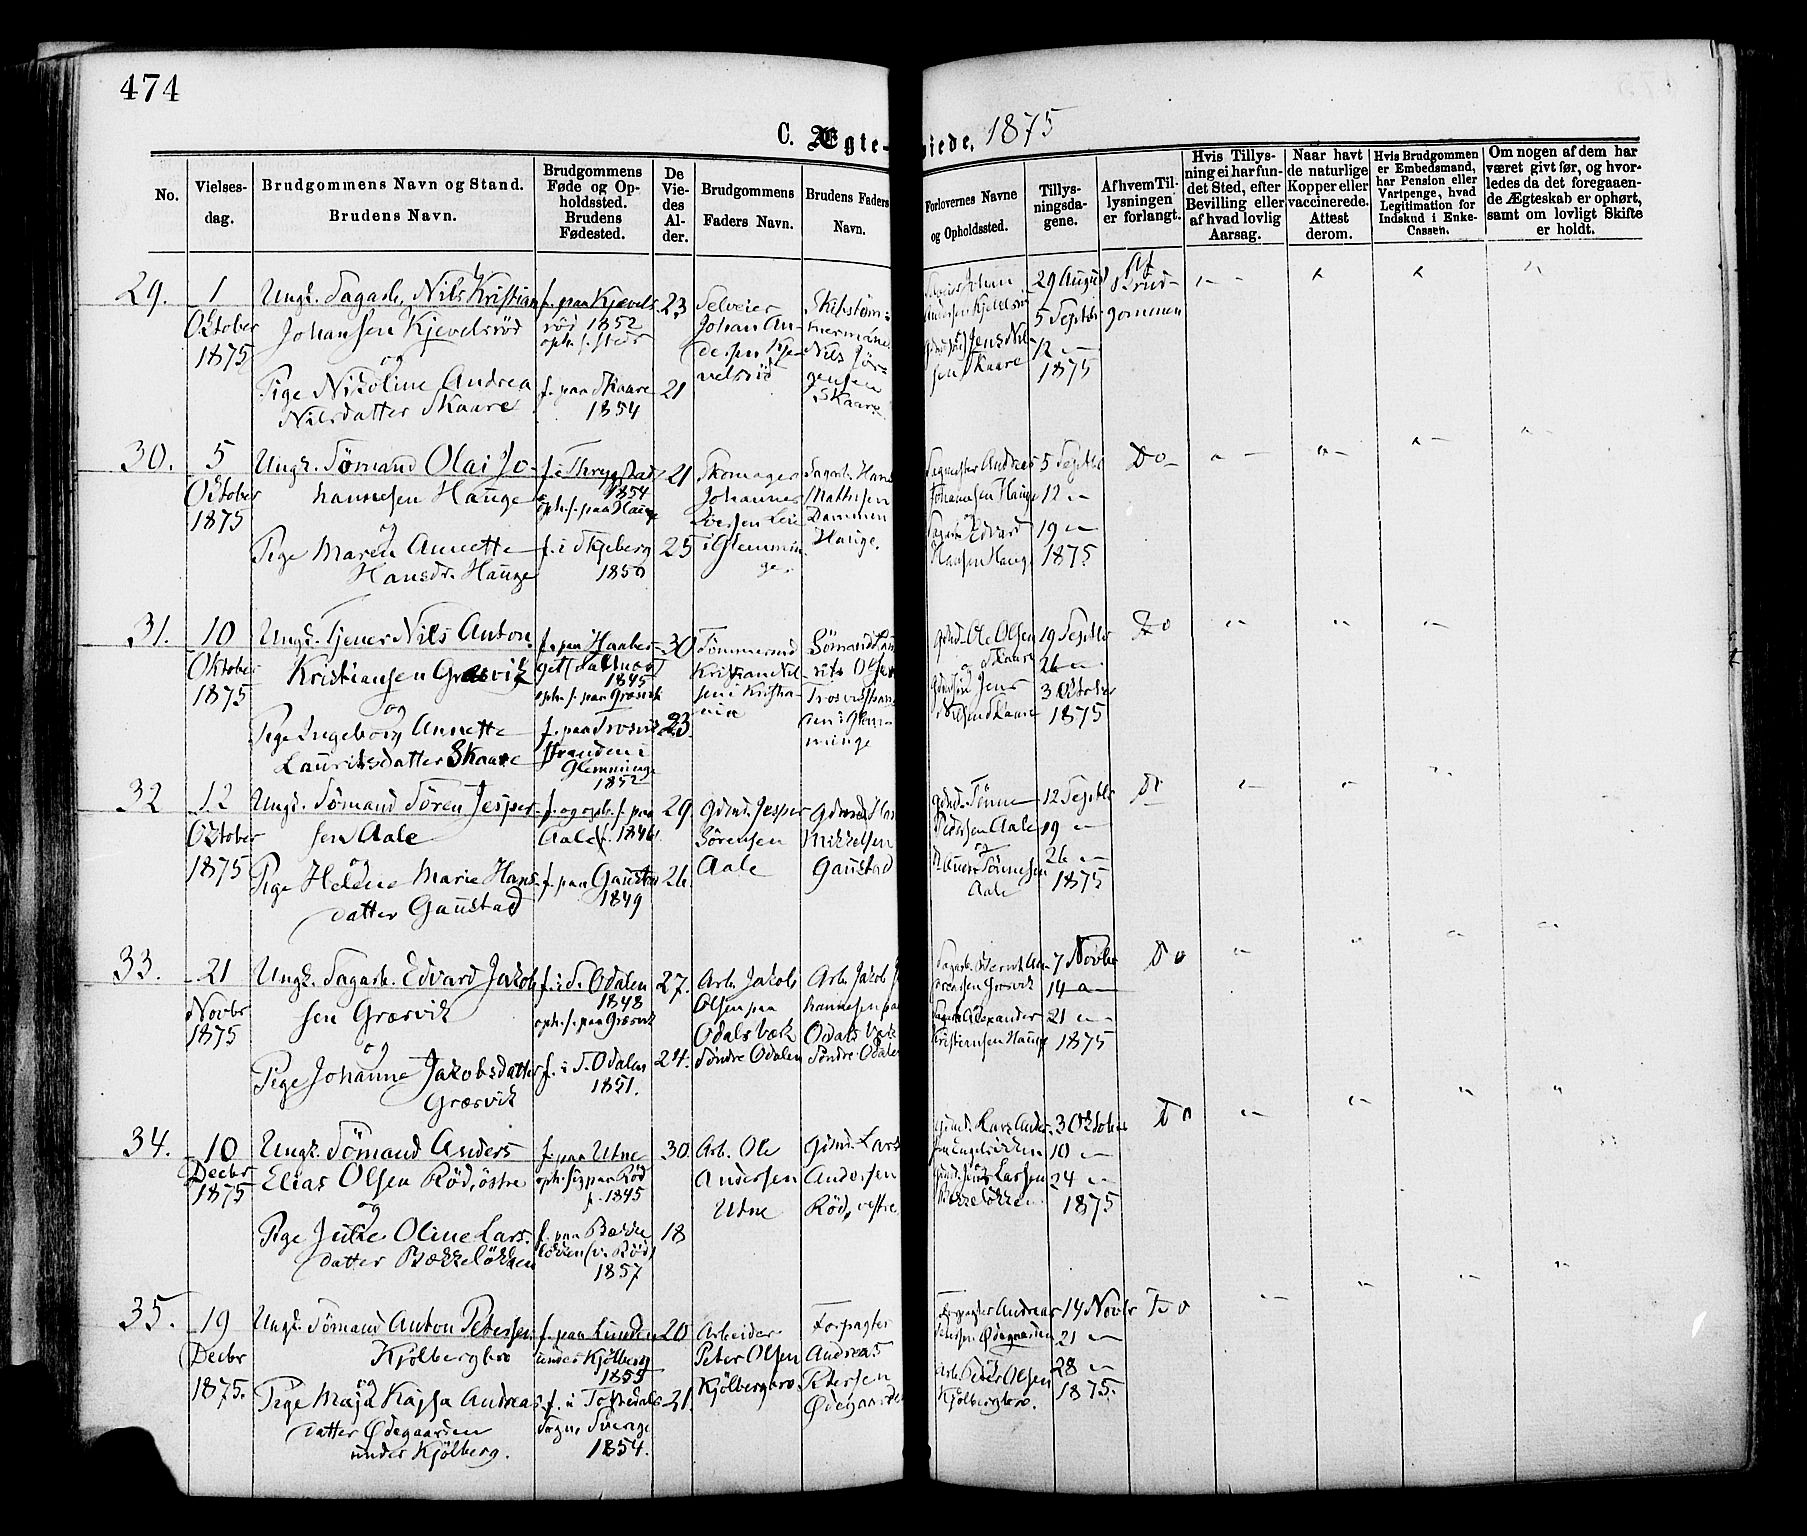 474
C. Ægte-viede, 1875
No.
Vielses-
dag.
Brudgommens Navn og Stand.
Brudens Navn.
Brudgommens
Føde og Op-
holdssted.
Brudens
Fødested.
De
Vie-
des
Al-
der.
Brudgommens
Faders Navn.
Brudens Faders
Navn.
Forlovernes Navne
og Opholdssted.
Tillys-
ningsda-
gene.
Af hvem Til-
lysningen
er forlangt.
Hvis Tillys-
ning ei har fun-
det Sted, efter
Bevilling eller
af hvad lovlig
Aarsag.
Naar havt
de naturlige
Kopper eller
vaccinerede.
Attest
derom.
Hvis Brudgommen
er Embedsmand,
har Pension eller
Vartpenge, hvad
Legitimation for
Indskud i Enke-
Cassen.
Om nogen af dem har
været givt før, og hvor-
ledes da det foregaaen-
de Ægteskab er ophørt,
samt om lovligt Skifte
er holdt.
29.
1
Oktober
1875
Ungk. Sagarb. Nils Kristian
Johansen Kjevelsrød
og
Pige Nicoline Andrea
Nilsdatter Skaare
f. paa Kjevels-
rød 1852
oph. s. steds
f. paa Skaare
1854
23
21
Selveier
Johan An-
dersen Kje-
velsrød
Skibstøm-
mermand
Nils Jør-
gensen
Skaare
Johan
Andersen Kjevelsrød
Jens Nil-
sen Skaare
29 August
5 Septbr
12 "
1875
Af
Brud-
gommen
30.
5
Oktober
1875
Ungk. Sømand Olai Jo-
hannesen Hauge
og
Pige Maren Annette
Hansdr. Hauge
f. i Thrygstad
1854
oph. s. paa Hauge
f. i Skjeberg
1850
21
25
Skomager
Johannes
Iversen Lie
i Glemmin-
ge.
Sagarb. Hans
Mathisen
Dammen
Hauge.
Sagmester Andreas
Johannesen Hauge
Sagarb. Edvard
Hansen Haug
5 Septbr
12 "
19 "
1875
Do
31.
10
Oktober
1875
Ungk. Tjener Nils Anton
Kristiansen Græsvik
og
Pige Ingeborg Annette
Lauritsdatter Skaare
1845
oph. s. paa Græsvik
f. paa Trosvik
stranden i
Glemminge
1852
30
23
Tømmermd
Kristian Nil-
sen i Kristia-
nia
Sømand Lau-
rits Olsen
Trosvikstran-
den i Glem-
minge
Gdmd. Ole Olsen
Skaare
og
Jens
Nilsen Skaare
19 Septbr
26 "
3 Oktober
1875
Do
32
12
Oktober
1875
Ungk. Sømand Søren Jesper-
sen Aale
og
Pige Helene Marie Hans-
datter Gaustad
f. og oph. s. paa
Aale f. 1846
f. paa Gaustad
1849
29
26
Gdmd. Jesper
Sörensen
Aale
Gdmd. Hans
Mikkelsen
Gaustad
Gdmd. Tønne
Pedersen Aale
og
Tønnesen
Aale
12 Septbr
19 "
26 "
1875
Do
33.
21
Novbr
1875
Ungk. Sagarb. Edvard Jakob-
sen Græsvik
og
Pige Johanne Jakobsdatter
Græsvik
f. i S. Odalen
1848
oph. s. paa Græsvik
f. i S. Odalen
1851.
27.
24.
Arb. Jakob
Olsen paa
Odals Værk
Søndre Odalen
Arb. Jakob Jo-
hannesen paa
Odals Værk
Søndre Odalen
Sagarb. Bernt
Græsvik
Sagarb. Alexander
Kristiansen Hauge
7 Novbr
14 "
21 "
1875
Do
34.
10
Decbr
1875
Ungk. Sømand Anders
Elias Olsen Rød, østre
og
Pige Julie Oline Lars-
datter Bækkeløkken
f. paa Utne
oph. sig paa Rød
f. 1845
f. paa Bække
løkken (v. Rød)
1857
30
18
Arb. Ole
Andersen
Utne
Gdmd. Lars
Andersen
Rød, vestre
Gdmd. Lars Ander-
sen
Larsen
Bækkeløkken
3 Oktober
10 "
24 "
1875
Do
35.
19
Decbr
1875.
Ungk. Sømand Anton Petersen
Kjølbergbro
og
Pige Maja Kajsa Andreas-
datter Ødegaarden
under Kjølberg.
f. paa Lunden
under Kjølberg
1855
f. i
Sogn, Sverige
1854.
20
21.
Arbeider
Peter Olsen
Kjølbergbro.
Forpagter
Andreas
Petersen
Ødegaarden
Forpagter Andreas
Petersen Ødegaarden
Arb. Peter Olsen
Kjølbergbro.
14 Novbr
21 "
28 "
1875.
Do